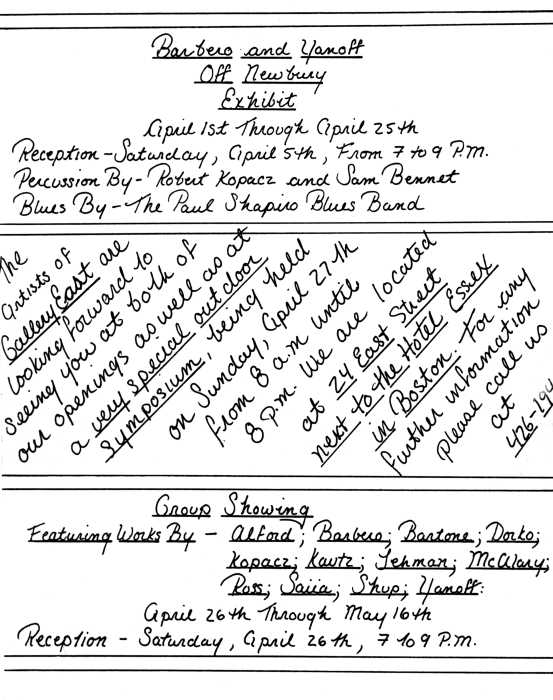 Barbero and Yanoff
Off Newbury
Exhibit
April 1st Through April 25th
Reception - Saturday, April 5th, From 7 to 9 P.M.
Percussion By - Robert Kopacz and Sam Bennet
Blues By - The Paul Shapiro Blues Band
The
artists of
Gallery East are
looking forward to
seeing you at both of
our openings as well as at
a very special outdoor
symposium, being held
on Sunday, April 27th
from 8 a.m until
8 p.m. We are located
at 24 East Street
next to the Hotel Essex
in Boston. For any
further information
please call us
at
Group Showing
Featuring Works By - Alford; Barbero; Bartone; Dorko;
Kopacz; Kautz; Lehman; McAlary;
Ross; Saiia; Shup; Yanoff:
April 26th Through May 16th
Reception - Saturday, April 26th, 7 to 9 P.M.